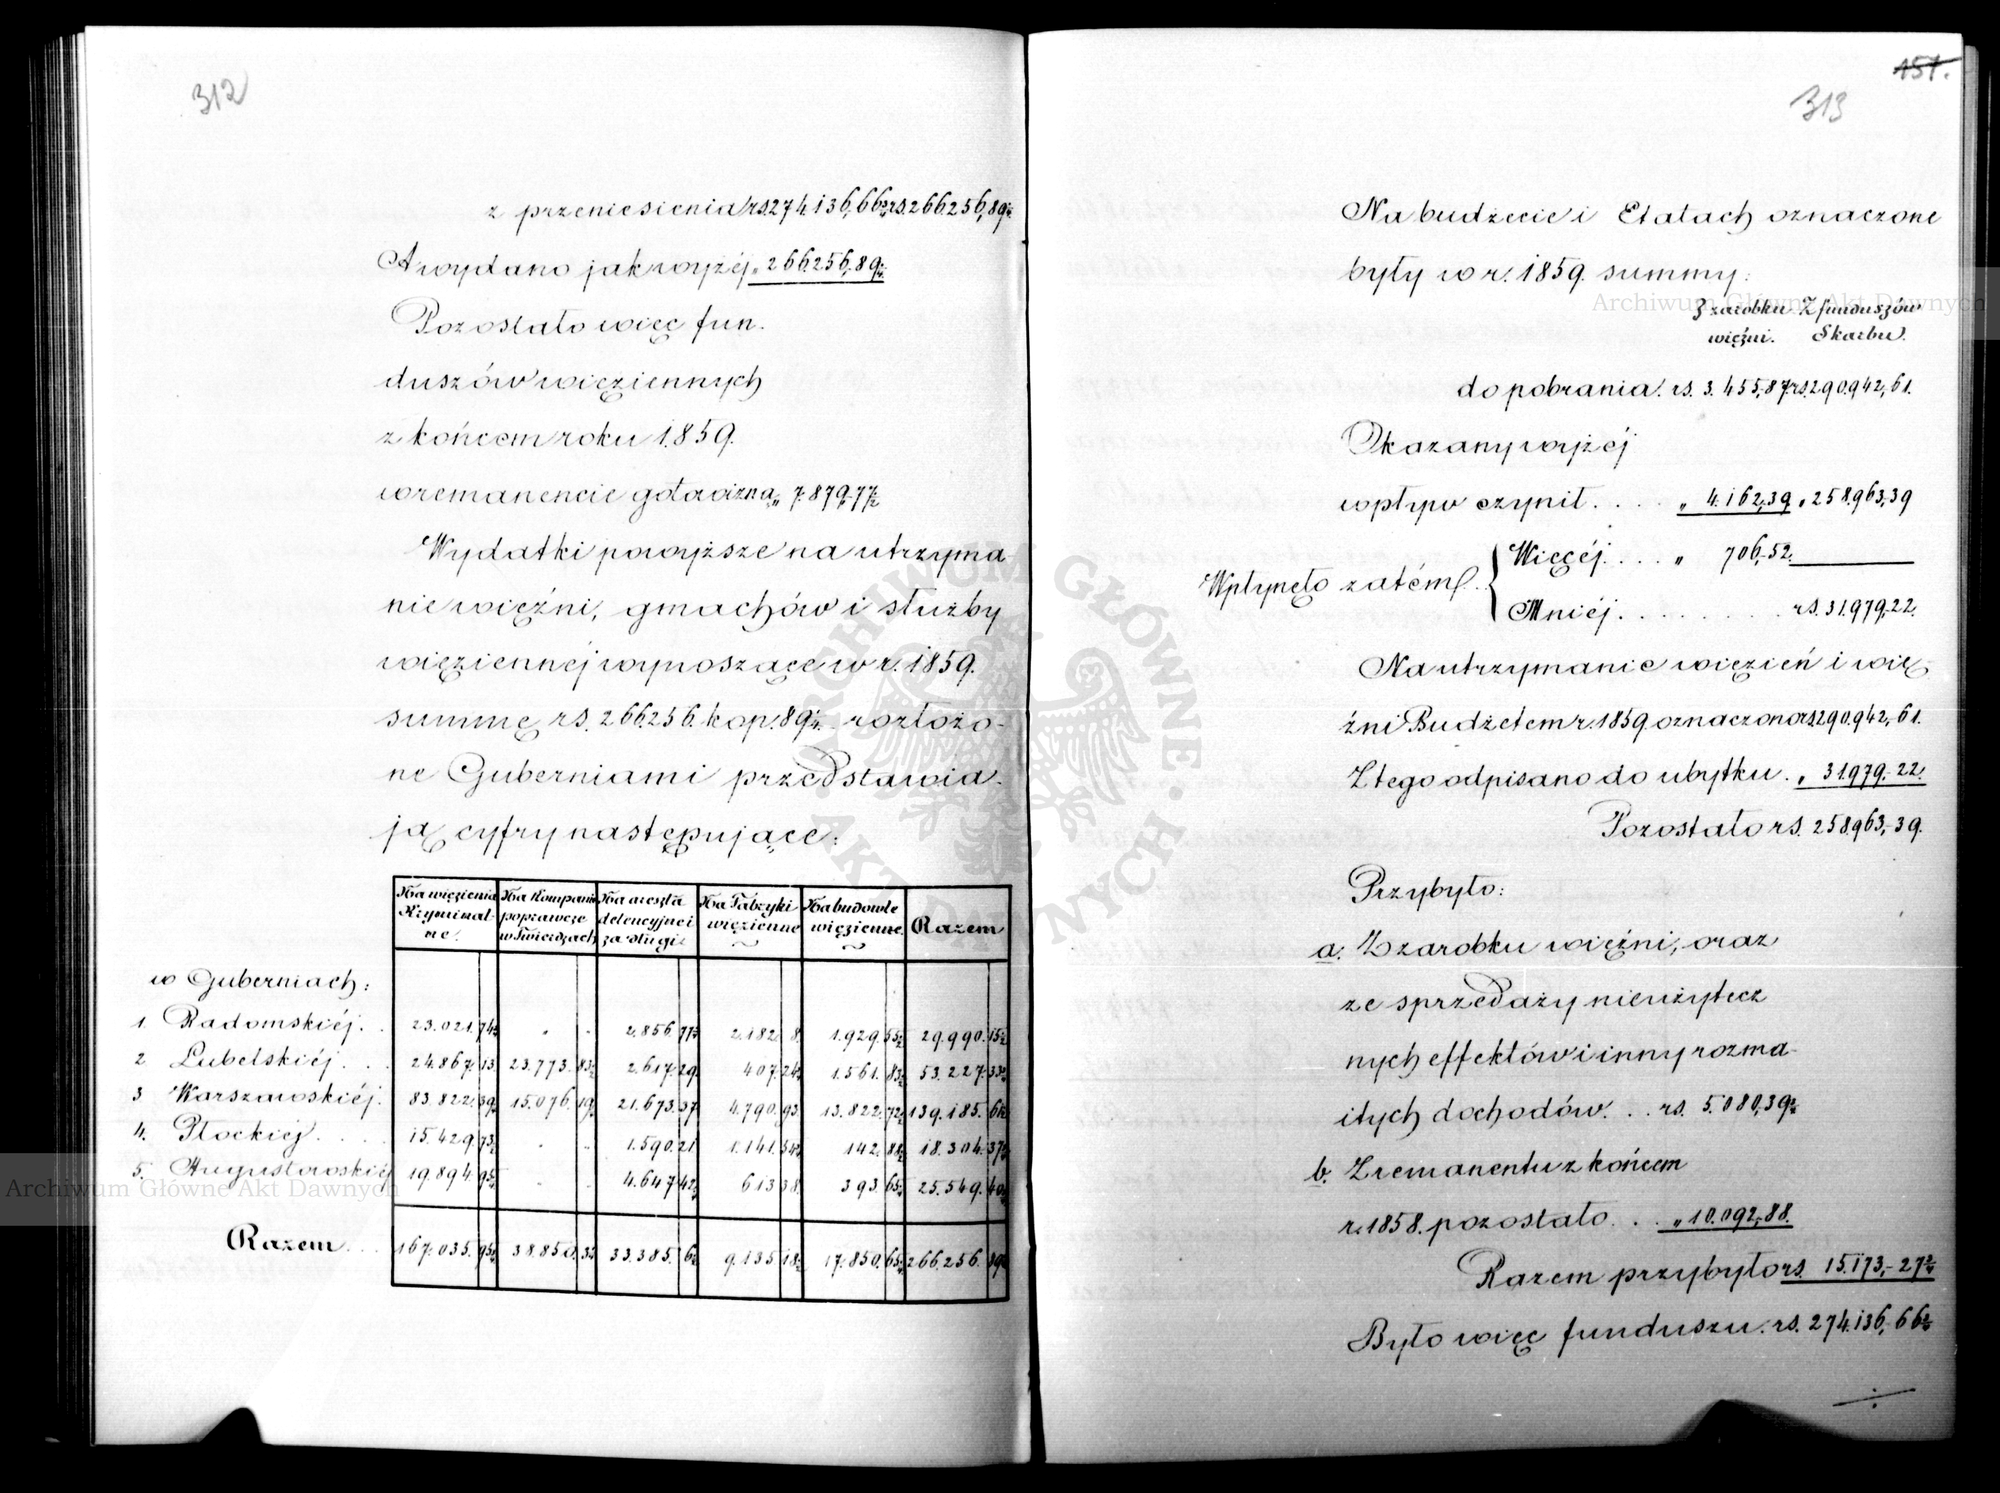 312
z przeniesienia rs. 274.136,66 2/4 rs. 266256,89 1/4
A wydano jak wyżéj „ 266.256,89 1/4
Pozostało więc fun
duszów więziennych
z końcem roku 1859.
w remanencie gotowizną „ 7.879,77
Wydatki powyższe na utrzyma
nie więźni, gmachów i służby
więziennéj wynoszące w r. 1859.
summę rs. 266256. kop. 89 1/4 rozłożo-
ne Guberniami przedstawia
ją cyfry następujące:
Na więzienia Kryminalne. | Na Kompanie poprawcze w Twierdzach | Na areszta detencyjne i za długi | Na Fabryki więzienne | Na budowle więzienne. | Razem
w Guberniach:
1 Radomskiéj . . 23.021. 74 | „ „ | 2.856. 77 | 2.182. 8 | 1.929. 55 | 29.990. 15
2 Lubelskiéj . . . 24.867. 13 | 23.773. 83 | 2.617. 29 | 407. 24 | 1.561. 83 | 53.227. 33
3 Warszawskiéj. 83.822. 39 | 15.076. 19 | 21.673. 37 | 4.790. 93 | 13.822. 72 | 139.185. 61
4. Płockiéj . . . . 15.429. 73 | . „ | 1.590. 21 | 1.141. 54 | 142. 88 | 18.304. 37
5. Augustowskiéj 19.894. 95 | . . | 4.647 42 | 613 38. | 393. 65 | 25.549. 40
Razem . . . 167.035. 95 | 38.850. 3 | 33.385. 6 | 9.135 18 | 17.850. 65 | 266.256. 89
151.
313
Na budżecie i Etatach oznaczone
były w r. 1859. summy:
Z zarobku Z funduszów
więźni. Skarbu.
do pobrania. rs. 3.455,87. rs. 290.942,61.
Okazany wyżéj
wpływ czynił . . . . „ 4.162,39. „ 258.963,39
Wpłynęło zatém . . { Więcéj . . . . „ 706,52.
Mniéj . . . . . . . . . rs. 31.979,22.
Na utrzymanie więzień i wię
źni Budżetem r. 1859. oznaczono rs. 290.942,61.
Z tego odpisano do ubytku . „ 31.979,22.
Pozostało rs. 258.963,39.
Przybyło:
a. Z zarobku więźni, oraz
ze sprzedaży nieużytecz
nych effektów i inny rozma
itych dochodów . . . rs. 5.080,39 2/4
b. Z remanentu z końcem
r. 1858. pozostało . . . „ 10.092,88.
Razem przybyło rs. 15.173,27 2/4
Było więc funduszu. rs. 274.136,66 2/4
Archiwum Główne Akt Dawnych
Archiwum Główne Akt Dawnych
ARCHIWUM GŁÓWNE AKT DAWNYCH